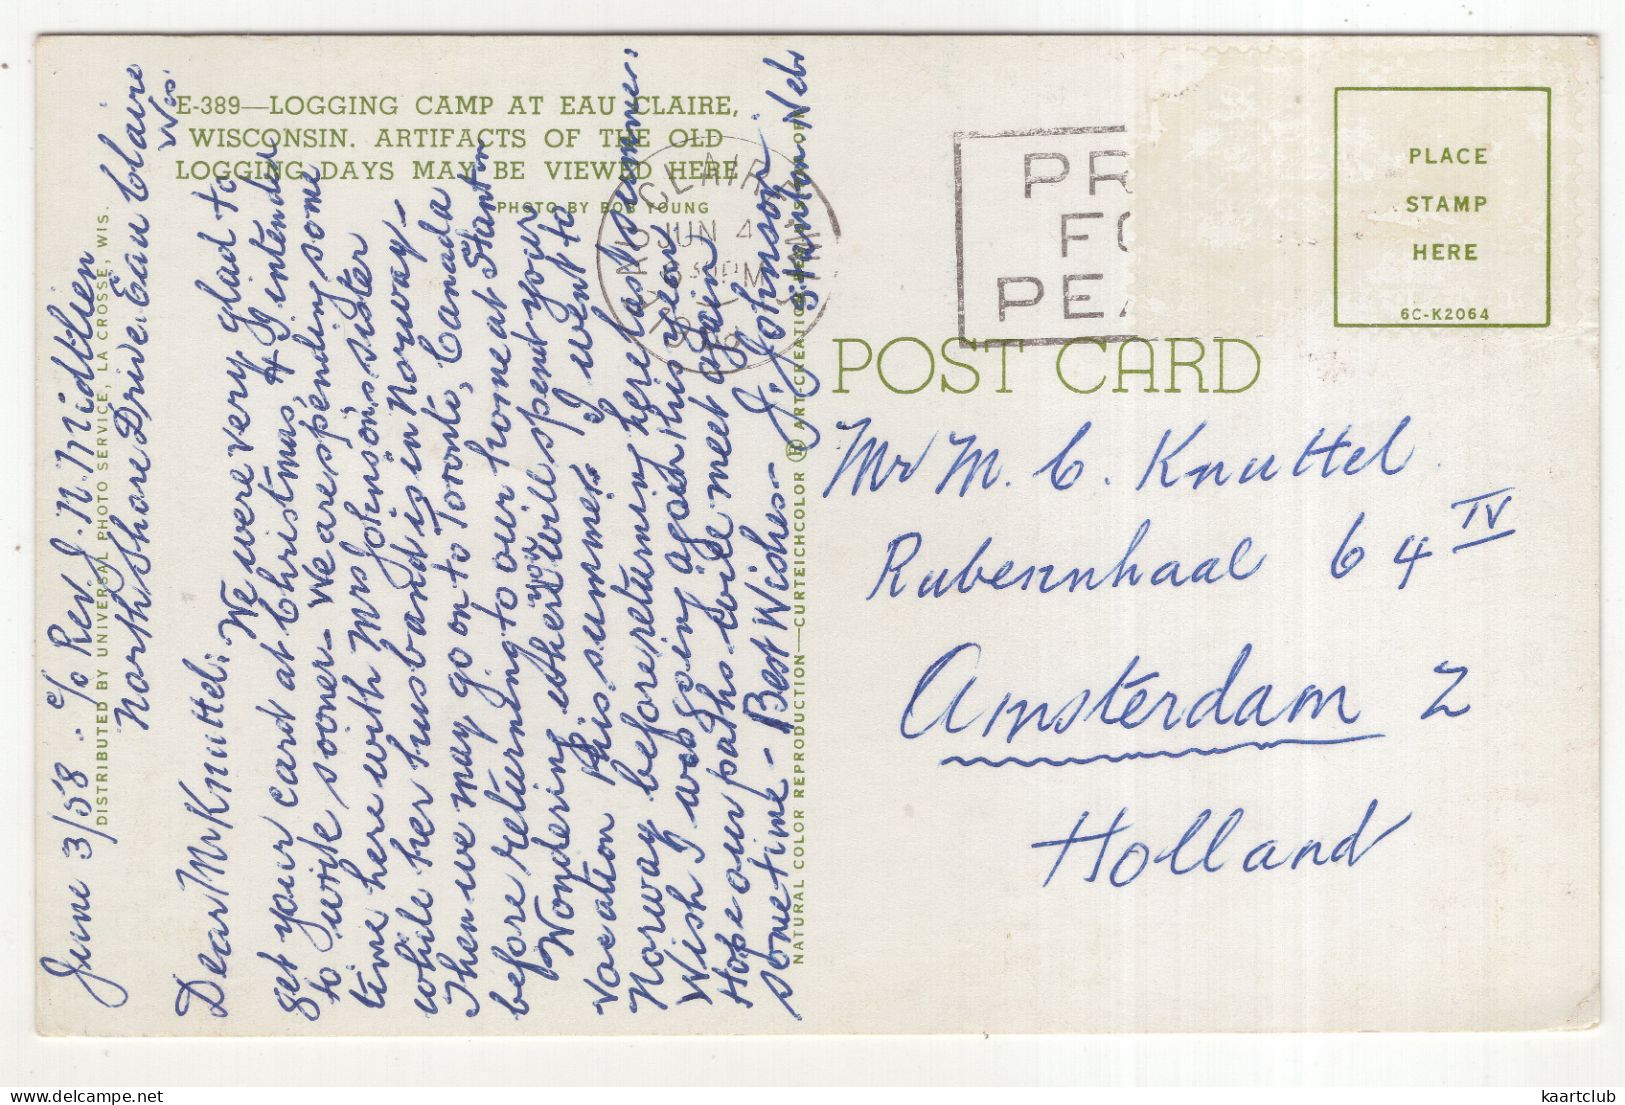 E-389—LOGGING CAMP AT EAU CLAIRE,
WISCONSIN. ARTIFACTS OF THE OLD
LOGGING DAYS MAY BE VIEWED HERE
PHOTO BY BOB YOUNG
DISTRIBUTED BY UNIVERSAL PHOTO SERVICE, LA CROSSE, WIS.
June 3/58. c/o Rev J. N. Midtlien
Northshore Drive Eau Claire
Wis.
Dear Mr Knuttel: We were very glad to
get your card at Christmas, & I intended
to write sooner - We are spending some
time here with Mrs Johnson's sister
while her husband is in Norway -
Then we may go on to Toronto, Canada
before returning to our home at Stanton
Wondering where you will spent your
vacation this summer. I went to
Norway before returning here last summer.
Wish I was going again this year
Hope our paths will meet again
sometime - Best Wishes - J. Johnson
Stanton Nebr
NATURAL COLOR REPRODUCTION—CURTEICHCOLOR ® ART-CREATION
CLAIRE
JUN 4
PM
PR
FO
PEA
PLACE
STAMP
HERE
6C-K2064
POST CARD
Mr M. C. Knuttel.
Rubensnhaal 64 IV
Amsterdam Z
Holland
delcampe.net
kaartclub